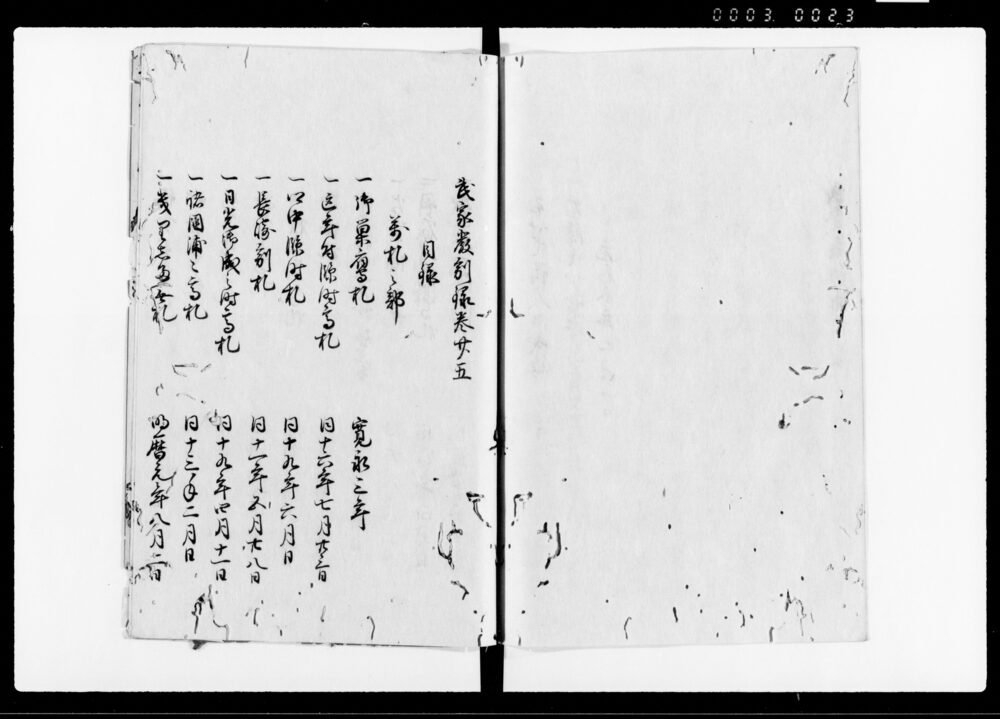 0003 0023
武家嚴制録巻廿五
目録
高札之部
一御巣鷹札 寛永三年
一近年付條洲高札 同十六年七月廿三日
一町中條洲札 同十九年六月日
一長崎制札 同十一年五月廿八日
一日光御成之時高札 同十九年四月十一日
一諸国浦之高札 同十三年二月日
札 明暦元年八月二日